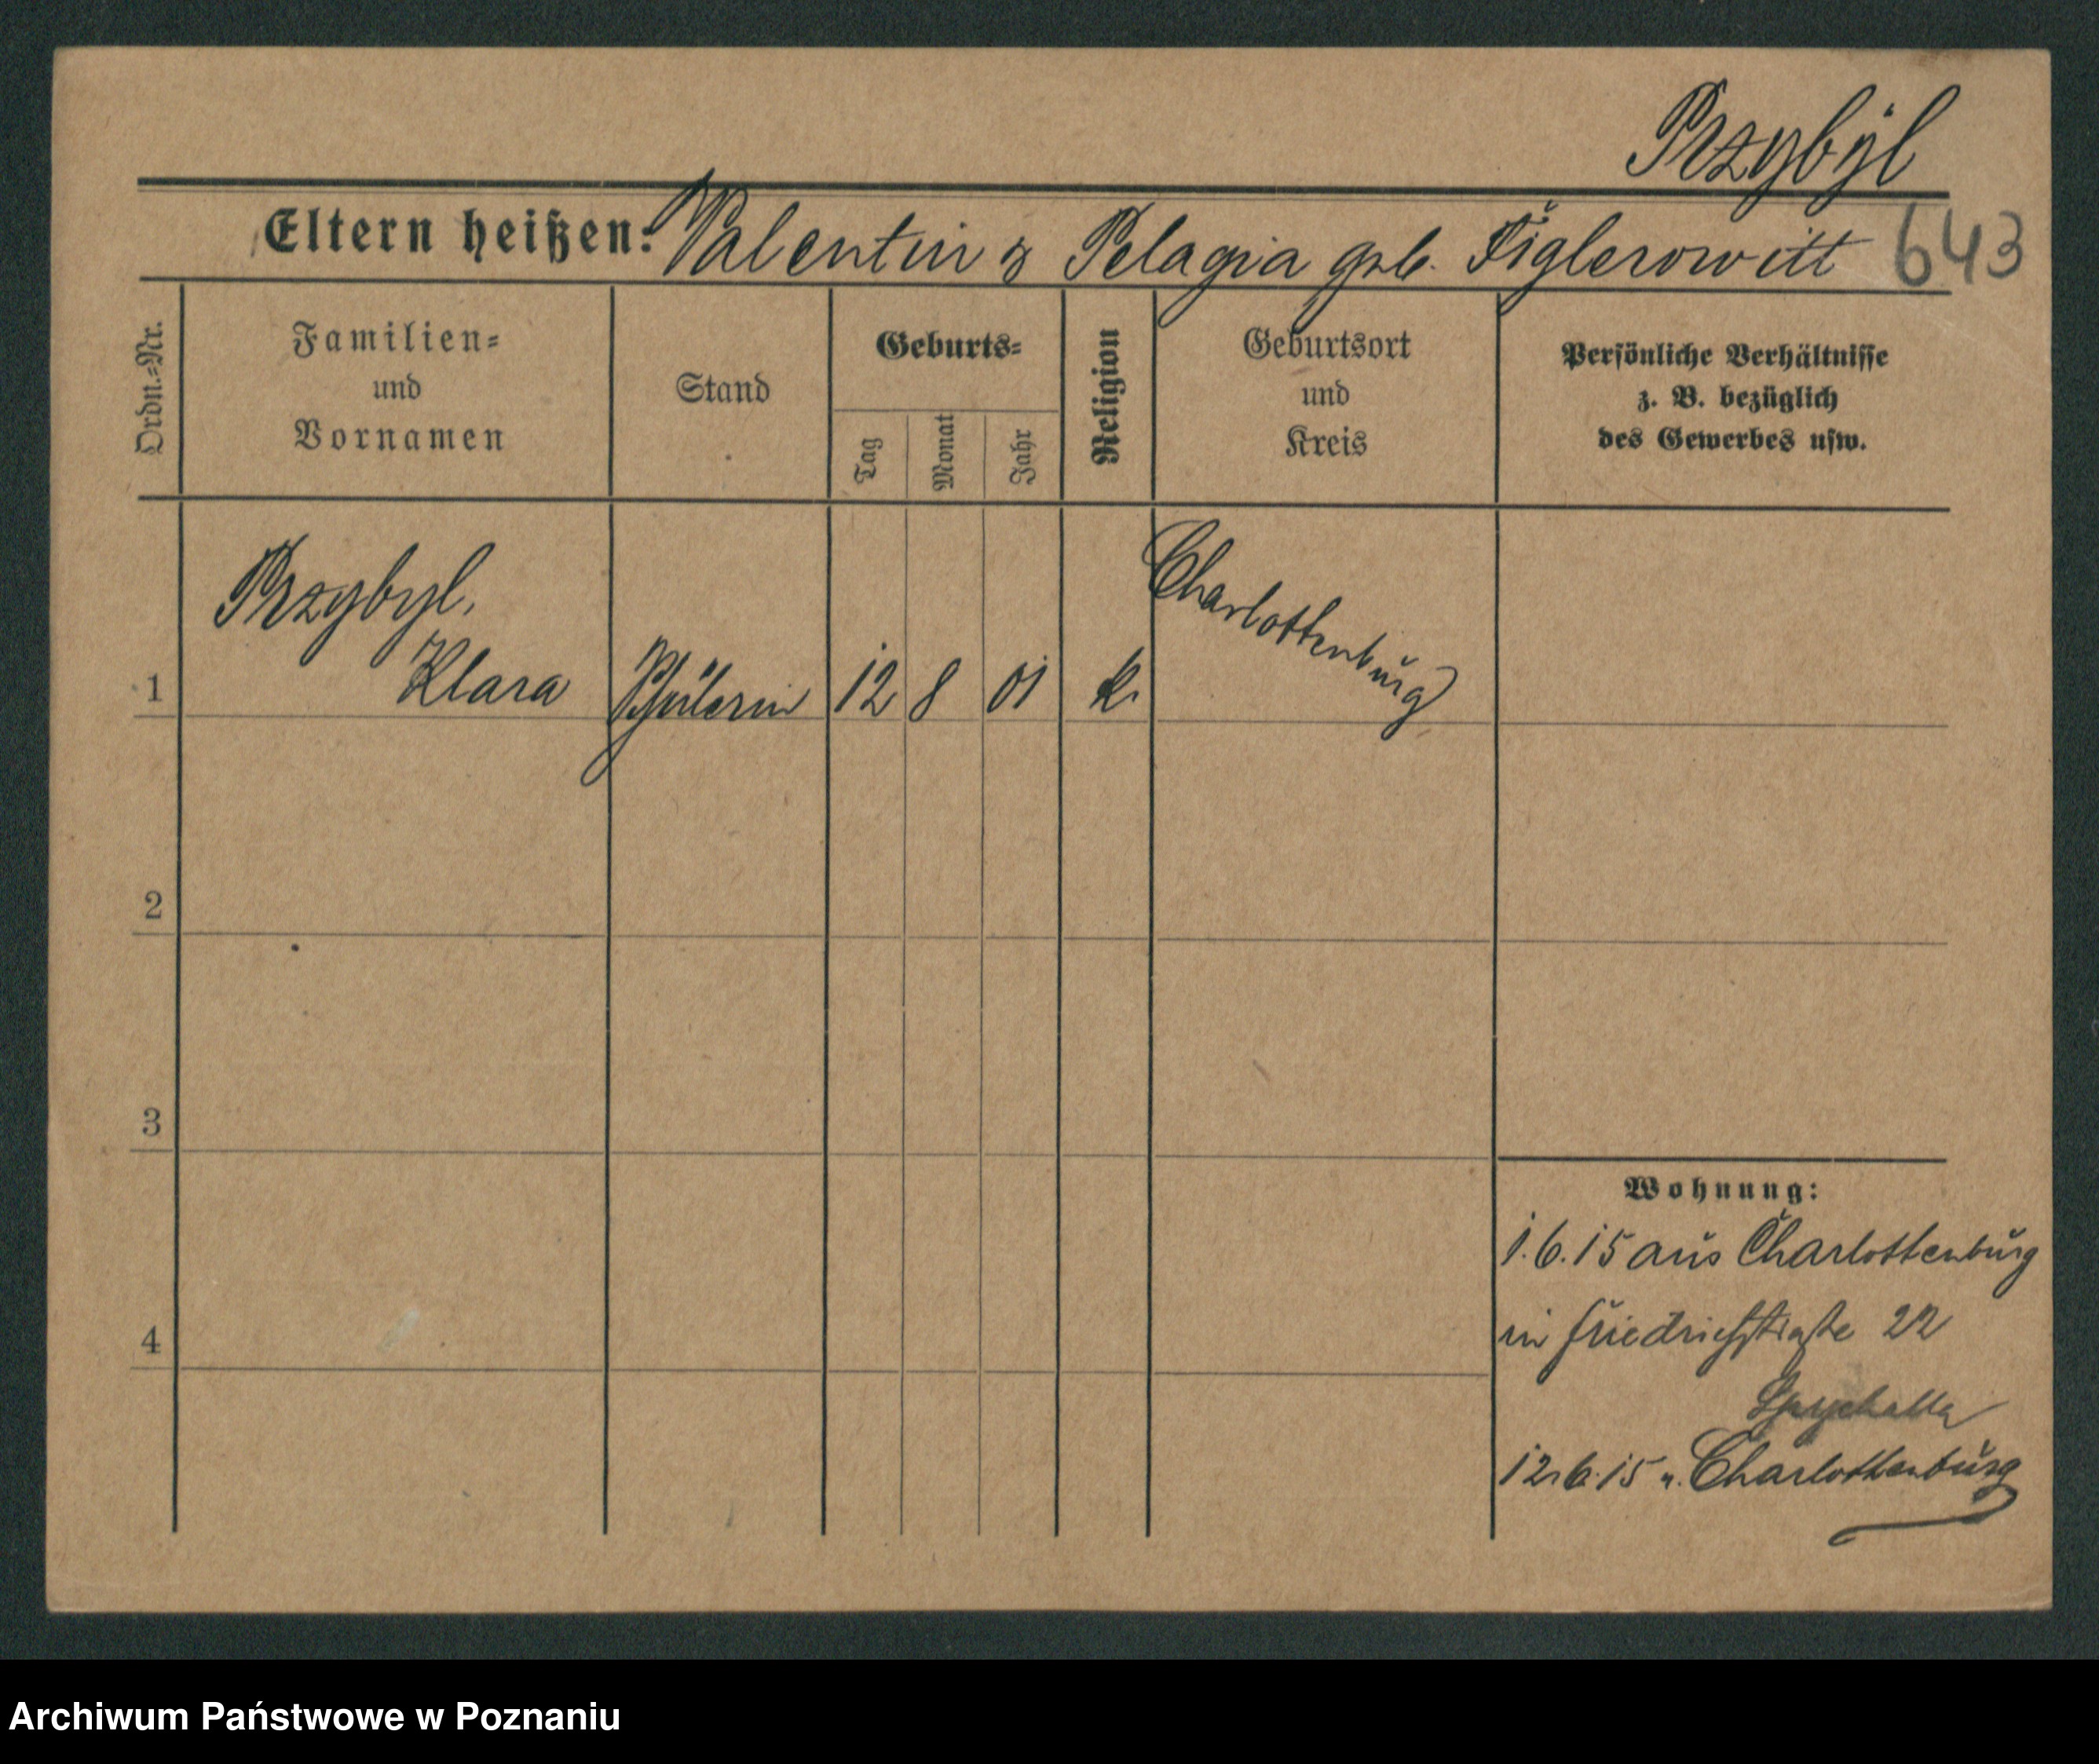 Przybyl
Eltern heißen: Valentin & Pelagia geb. Figlerowitt 643
Ordn.-Nr.
Familien-
und
Vornamen
Stand
Geburts-
Tag
Monat
Jahr
Religion
Geburtsort
und
Kreis
Persönliche Verhältnisse
z. B. bezüglich
des Gewerbes usw.
Przybyl,
1 Klara Schülerin 12 8 01 k. Charlottenburg
2
3
4
Wohnung:
1.6.15 aus Charlottenburg
in Friedrichstraße 22
Spychalla
12.6.15 n. Charlottenburg
Archiwum Państwowe w Poznaniu